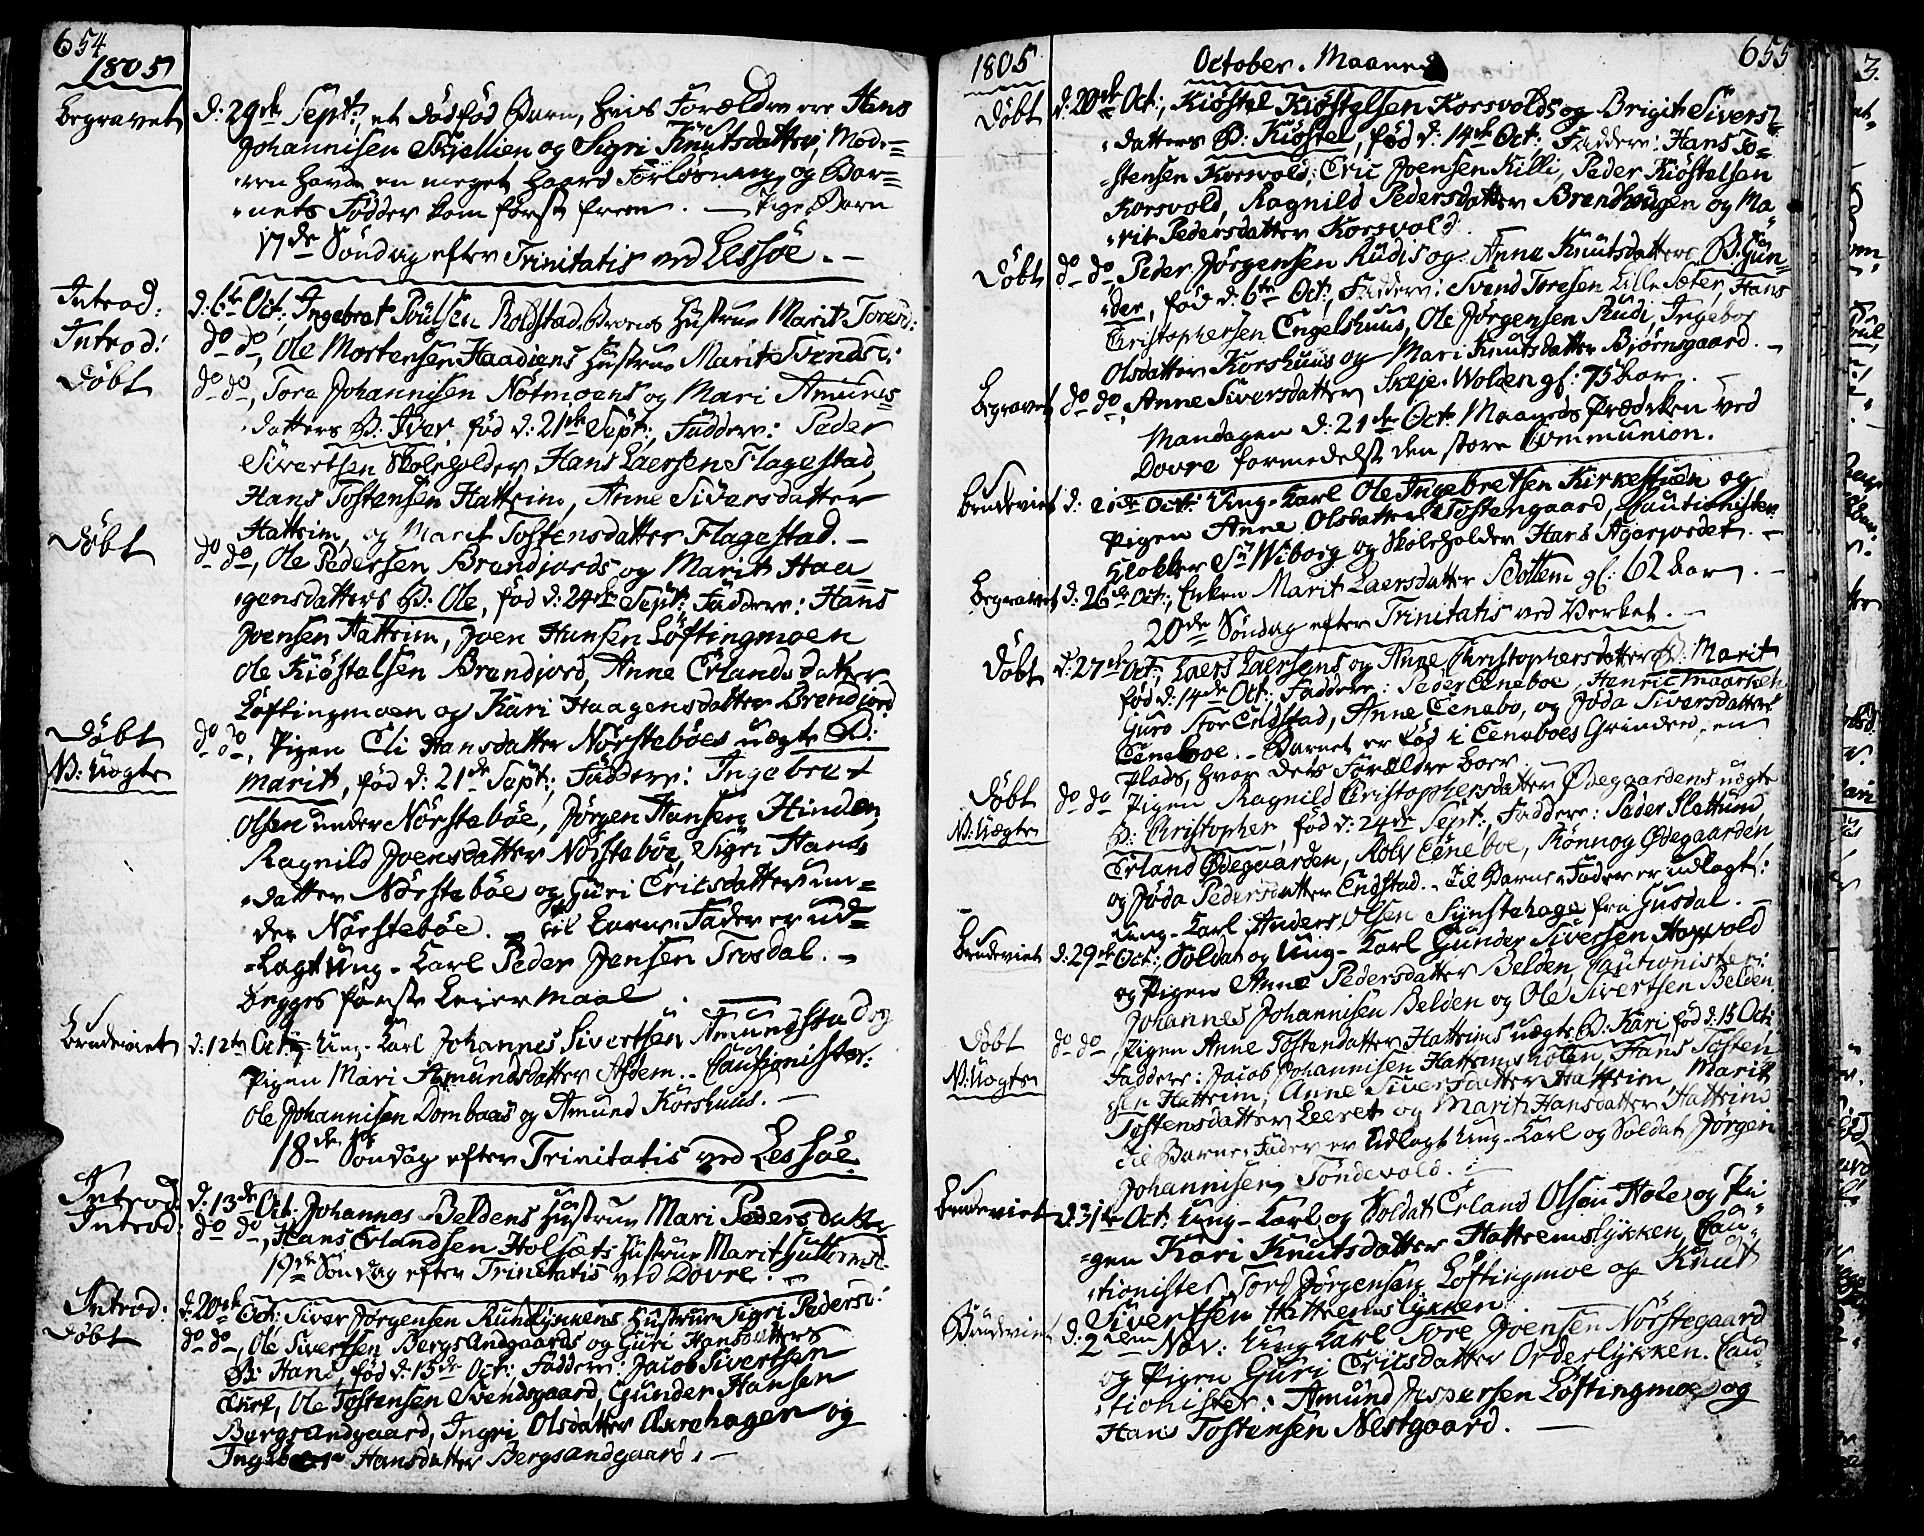 654
1805
Begravet d: 29de Sept:, et dödföd Barn, hvis Forældre ere Hans
Johannisen Skiellien og Sigri Knutsdatter, Mode=
=ren havde en meget haard Forlösning, og Bar=
=nets Födder kom först frem. — Pige Barn
17de Söndag efter Trinitatis ved Lessöe. —
Introd: d: 6te Oct:, Ingebret Poulsen Roldstad Broens Hustrue Marit Toresd:
Introd: do do, Ole Mortensen Haadiens Hustrue Marit Svendsd:
Döbt do do, Tore Johannisen Nötmoens og Mari Amunds=
datters B: Iver, föd d: 21de Sept:, Faddere: Peder
Sivertsen Skoleholder, Hans Laersen Flagestad,
Hans Tostensen Hattrim, Anne Siversdatter
Hattrim, og Marit Tostensdatter Flagestad. —
Döbt do do, Ole Pedersen Brendjords og Marit Haa=
=gensdatters B: Ole, föd d: 24de Sept:, Faddere: Hans
Joensen Hattrim, Joen Hansen Löftingmoen
Ole Kiöstelsen Brendjord, Anne Erlandsdatter
Löftingmoen og Kari Haagensdatter Brendjord
Döbt do do, Pigen Eli Hansdatter Nörsteböes uægte B:
N: Uægte Marit, föd d: 21de Sept:, Faddere: Ingebret
Olsen under Nörsteböe, Jörgen Hansen Hinden,
Ragnild Joensdatter Nörsteböe, Sigri Hans=
=datter Nörsteböe og Guri Ericsdatter un=
der Nörsteböe. — til Barne-Fader er ud=
=lagt Ung-Karl Peder Jensen Trosdal. —
begges förste Leiermaal
Brudeviet d: 12te Oct:, Ung-Karl Johannes Sivertsen Amundstad og
Pigen Mari Amundsdatter Afdem. — Cautionister:
Ole Johannisen Dombaas og Amund Korshuus. —
18de Söndag efter Trinitatis ved Lessöe.
Introd: d: 13de Oct: Johannes Beldens Hustrue Mari Pedersdatter
Introd: do do, Hans Erlandsen Holsæts Hustrue Marit Guttormsd:
19de Söndag efter Trinitatis ved Dovre. —
Introd: d: 20de Oct: Siver Jörgensen Rundlykkens Hustrue Sigri Pedersd:
Döbt do do, Ole Sivertsen Bergsandgaards og Guri Hansdatters
B: Hans, föd d: 15de Oct:, Faddere: Jacob Sivertsen
Ole Tostensen Svendsgaard, Gunder Hansen
Bergsandgaard, Ingri Olsdatter Qvrehagen og
Ingebor Hansdatter Bergsandgaard. —
655
1805 October. Maaned
Döbt d: 20de Oct:, Kiöstel Kiöstelsen Korsvolds og Brigit Sivers=
=datters B: Kiöstel, föd d: 14de Oct: Faddere: Hans To=
=stensen Korsvold, Eric Joensen Killi, Peder Kiöstelsen
Korsvold, Ragnild Pedersdatter Brendhaugen og Ma=
=rit Pedersdatter Korsvold.
Döbt do do Peder Jörgensen Rudis og Anne Knutsdatters B: Gun=
=der, föd d: 6te Oct:, Faddere: Svend Toresen Lille Sæter, Hans
Christophersen Engelshuus, Ole Jörgensen Rudi, Ingebor
Olsdatter Korshuus og Mari Knutsdatter Bjørnsgaard. —
Begravet do do, Anne Siversdatter Skeje-Wolden gl: 75 Aar. —
Mandagen d: 21de Oct: Maaneds Prædiken ved
Dovre formedelst den store Communion.
Brudeviet d: 21de Oct: Ung-Karl Ole Ingebretsen Kirkestuen og
Pigen Anne Olsdatter Tostengaard, Cautionister
Klokker Sr Wiborg og Skoleholder Hans Agerjordet. —
Begravet d: 26de Oct:, Enken Marit Laersdatter Bottem gl: 62 Aar. —
20de Söndag efter Trinitatis ved Verket. —
Döbt d: 27de Oct:, Laers Laersens og Anne Christophersdatter B: Marit
föd d: 14de Oct:, Faddere: Peder Eneboe, Henric Maarstad,
Guro Stor Endstad, Anne Eenebo, og Jöda Siversdatter
Eeneboe. — Barnet er föd i Eeneboes Grinden, en
Plads, hvor dets Forældre boer. —
Döbt do do Pigen Ragnild Christophersdatter Ödegaardens uægte
N: Uægte B: Christopher, föd d: 24de Sept:, Faddere: Peder Slettund,
Erland Ödegaarden, Rolv Eeneboe, Rönnog Ödegaarden
og Jöda Pedersdatter Endstad. — til Barne-Fader er udlagt:
Ung-Karl Anders Olsen Synstehage fra Gusdal. —
Brudeviet d: 29de Oct:, Soldat og Ung-Karl Gunder Siversen Horvold
og Pigen Anne Pedersdatter Belden, Cautionister:
Johannes Johannisen Belden og Ole Sivertsen Belden
Döbt do do, Pigen Anne Tostendatter Hattrims uægte B: Kari, föd d: 15 Oct:
N: Uægte Faddere: Jacob Johannisen Hattremsholen, Hans Tosten=
=sen Hattrim, Anne Siversdatter Hattrim, Marit
Tostensdatter Leeret og Marit Hansdatter Hattrim
til Barne-Fader er Udlagt Ung-Karl og Soldat Jörgen
Johannisen Töndevold. —
Brudeviet d: 31te Oct: Ung-Karl og Soldat Erland Olsen Hole og Pi=
=gen Kari Knutsdatter Hattremslykken, Cau=
=tionister Tord Jörgensen Löftingmoe og Knut
Sivertsen Hattremslykken.
Brudeviet d: 2den Nov: Ung Karl Tore Joensen Nörstegaard
og Pigen Guri Ericsdatter Orderlykken. Cau=
=tionister: Amund Jespersen Löftingmoe og
Hans Tostensen Nestgaard. —